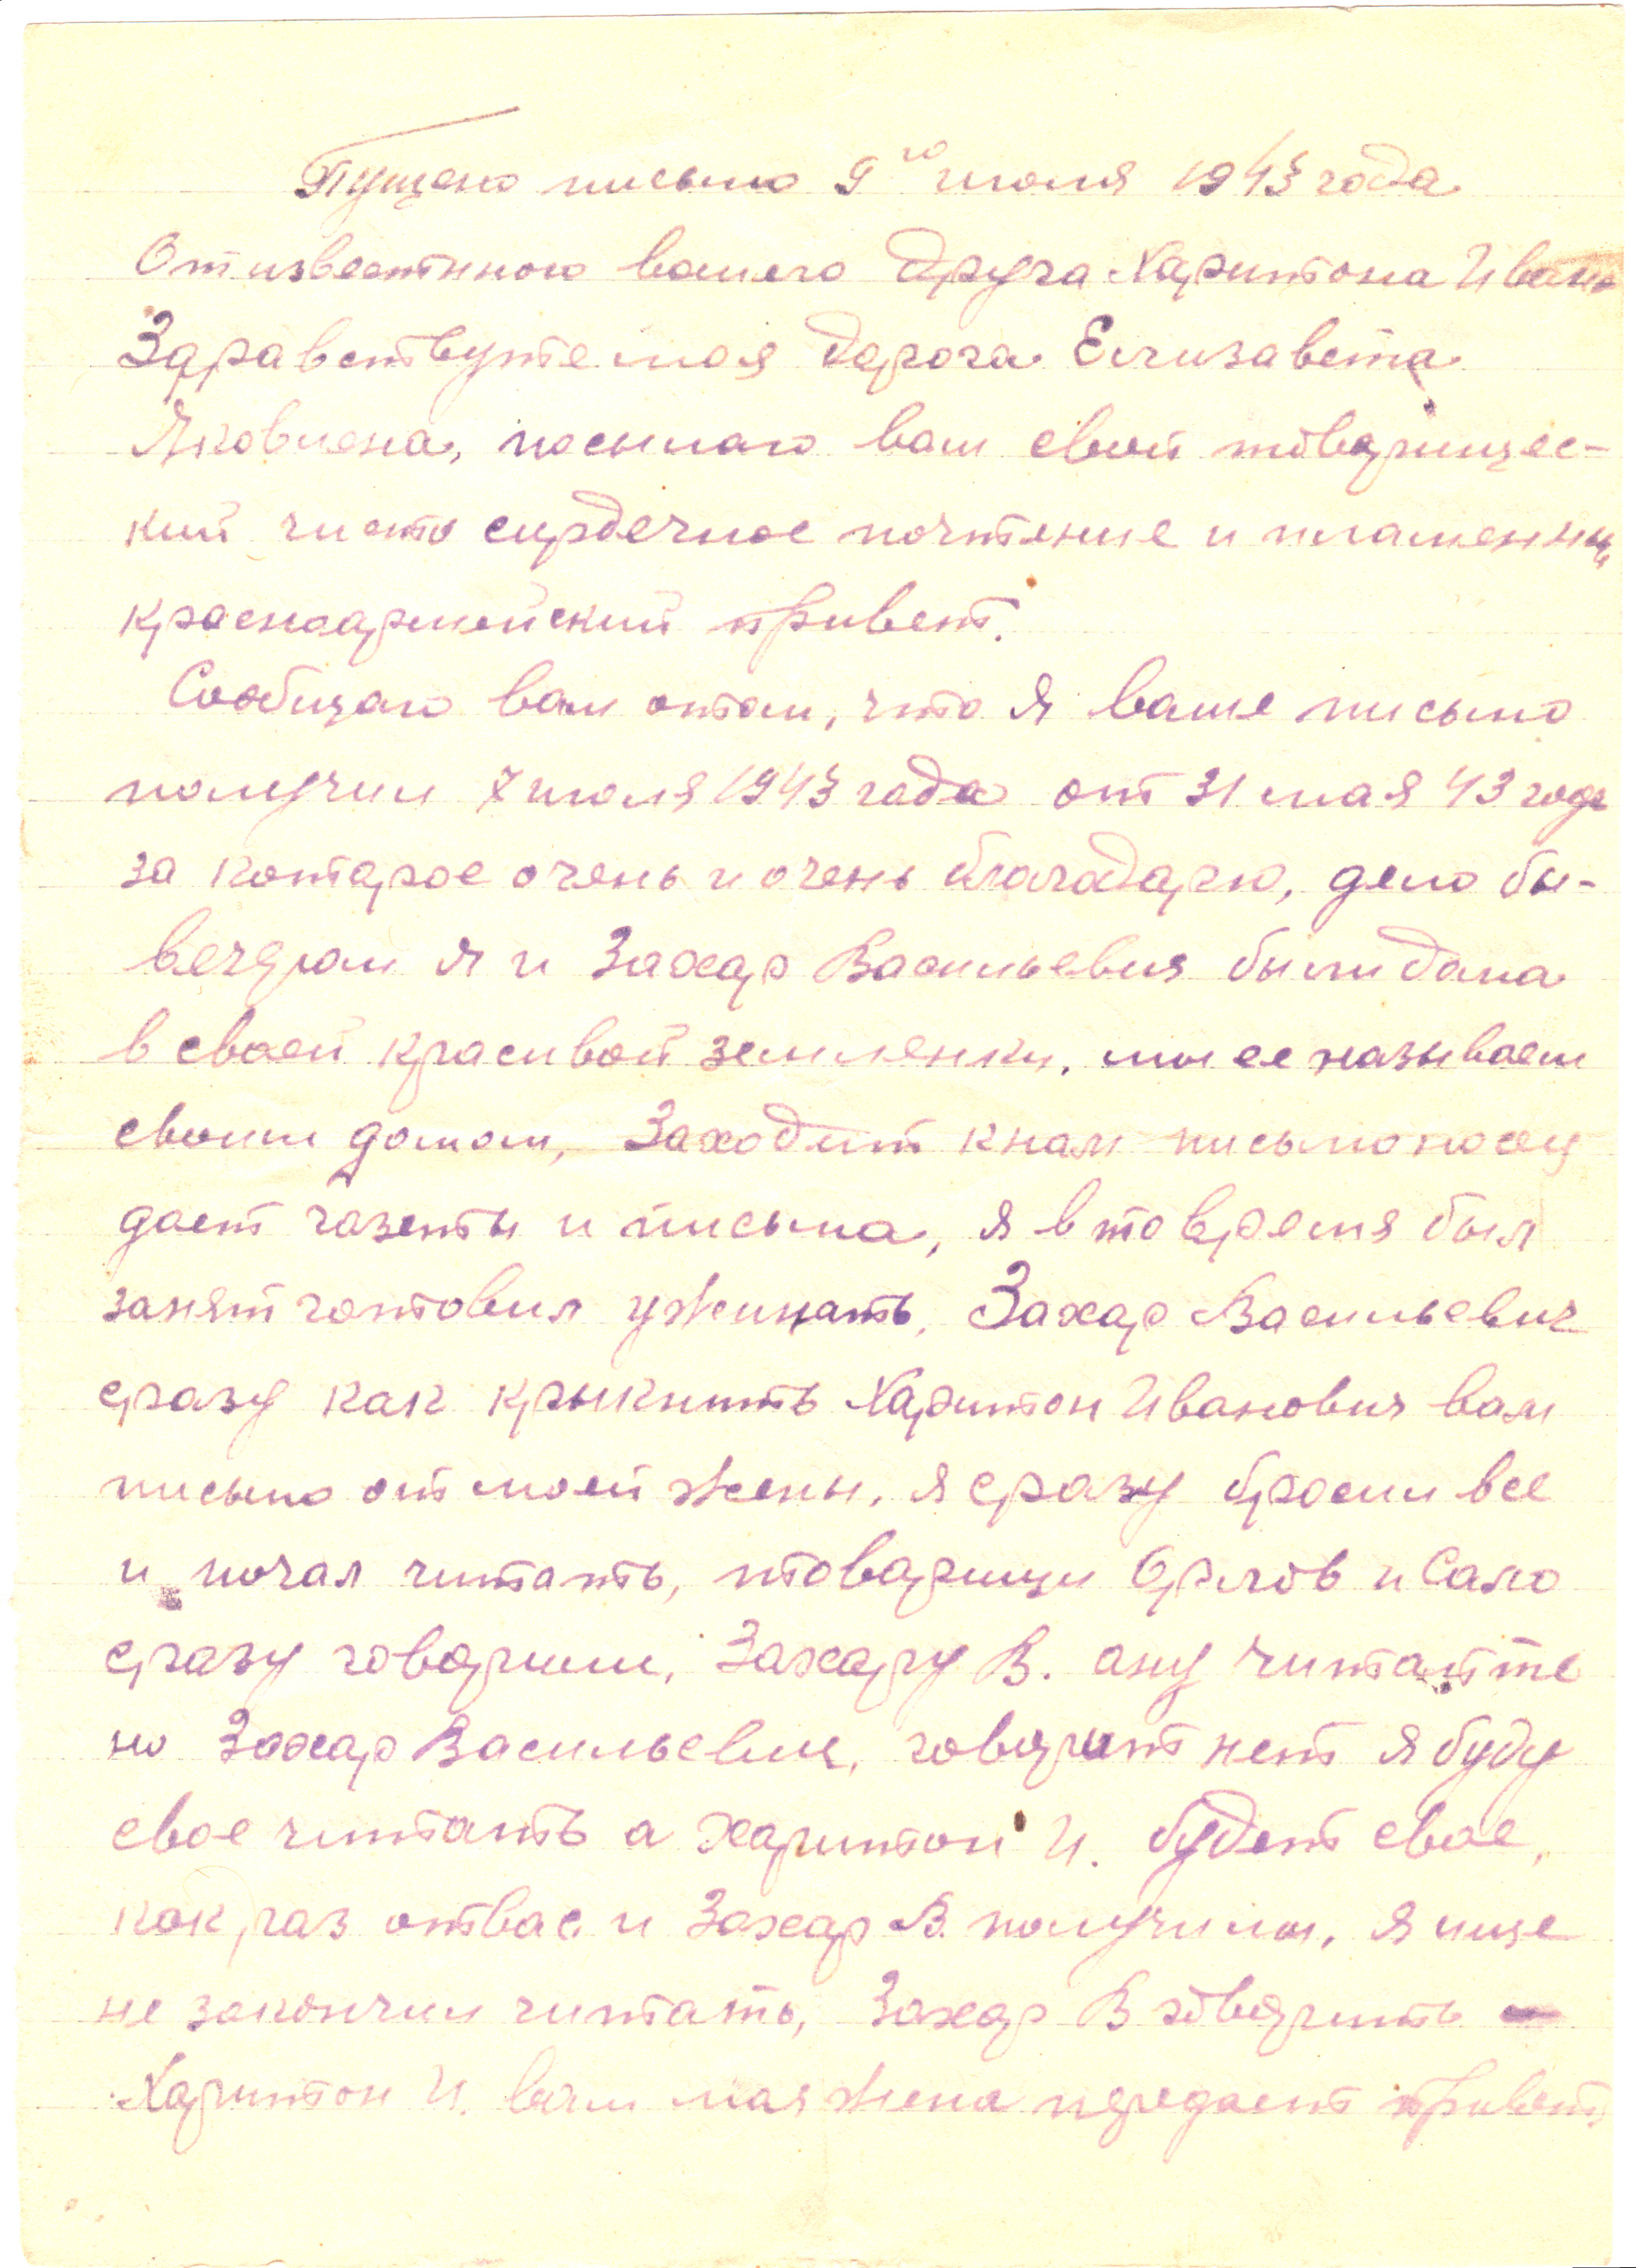 Пущено письмо 9го июля 1943 года
От известного вашего друга Харитона Ивано
Здравствуте моя дорога Елизавета
Яковлена, посылаю вам свой товарищес-
кий чисто сирдечное почтение и пламенны
красноармейский привет.
Сообщаю вам отом, что я ваше письмо
получил 7 июля 1943 года от 31 мая 43 года
за которое очень и очень благодарю, дело бы-
вечером я и Захар Васильевич были дома
в своей красивой землянки, мы ее называем
своим домом, Заходит кнам письмоносец
дает газеты и письма, я в то время был
занят готовил ужинать, Захар Васильевич
сразу как крыкнить Харитон Иванович вам
письмо от моей жены, я сразу бросил все
и почал читать, товарищи Орлов и Сало
сразу говорили, Захару В. ану читайте
но Захар Васильевич, говорит нет я буду
свое читать а Харитон И. будет свое,
как раз отвас и Захар В. получили, я ище
не закончил читать, Захар В говорить –
Харитон И. вам моя жена передает привет